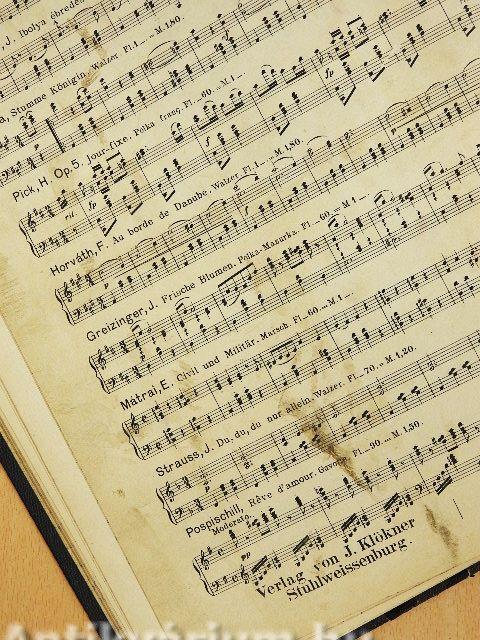 J. Ibolya ébred
Stumme Königin, Walzer. Fl. 1.— = M 1,80.
Pick, H. Op. 5. Jour-fixe. Polka franç. Fl.—60. = M 1.—.
rit. fp f f fp
Horváth, F. Au borde de Danube, Walzer. Fl. 1.— = M. 1,80.
p
Greizinger, J. Frische Blumen. Polka-Mazurka. Fl.—60 = M 1—.
Mátrai, E. Civil und Militär-Marsch. Fl.—60 = M 1—.
Strauss, J. Du, du, du nur allein. Walzer. Fl.—70. = M. 1,20.
Pospischill, Rêve d'amour. Gavotte. Fl.—90. = M. 1,50.
Moderato.
pp
Verlag von J. Klökner
Stuhlweissenburg.
Antikvárium.hu